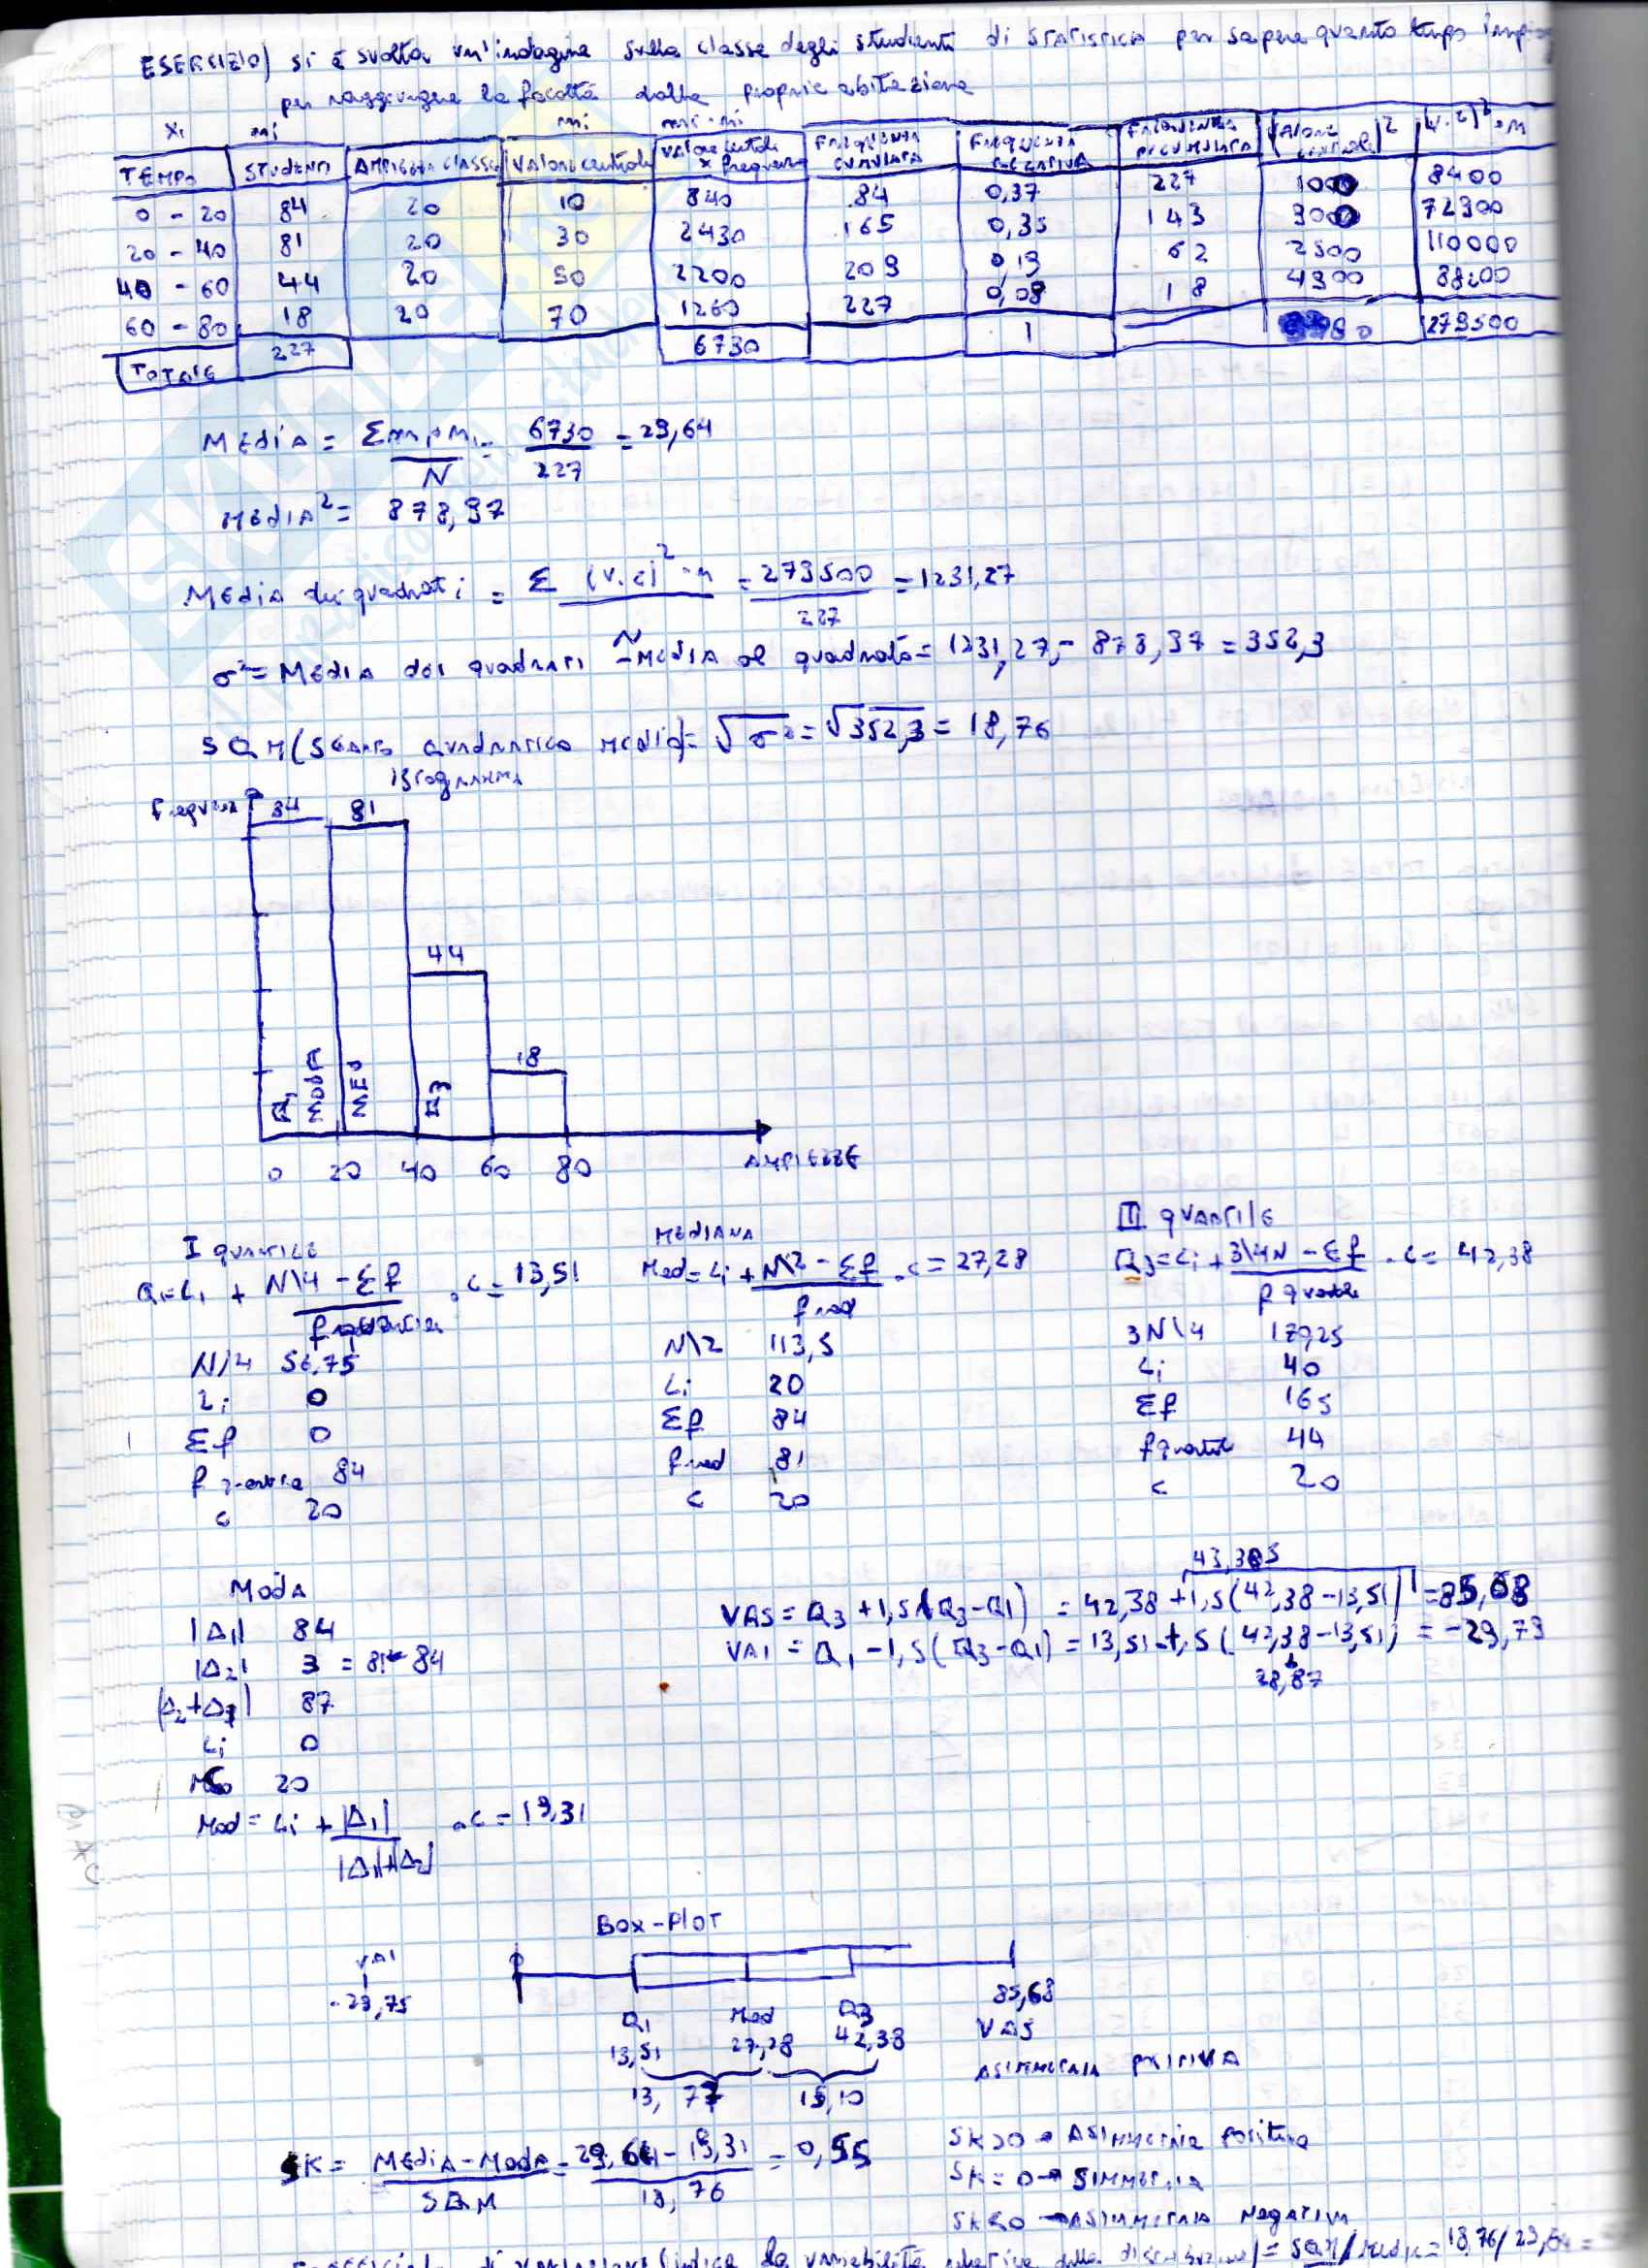 ESERCIZIO) si è svolta un'indagine sulla classe degli studenti di STATISTICA per sapere quanto tempo
per raggiungere la facoltà dalla propria abitazione
xi ni mi mi·ni
TEMPO STUDENTI AMPIEZZA CLASSE VALORE centrale VALORE centrale x frequenza FREQUENZA CUMULATA FREQUENZA RELATIVA FREQUENZA RECUMULATA (VALORE centrale)² (V.C)²·M
0 - 20 84 20 10 840 84 0,37 227 100 8400
20 - 40 81 20 30 2430 165 0,35 143 900 72900
40 - 60 44 20 50 2200 209 0,19 62 2500 110000
60 - 80 18 20 70 1260 227 0,08 18 4900 88200
TOTALE 227 6730 1 279500
MEDIA = Σmi·ni / N = 6730 / 227 = 29,64
MEDIA² = 878,97
MEDIA dei quadrati = Σ (V.C)²·n = 279500 / 227 = 1231,27
σ² = MEDIA dei quadrati - MEDIA al quadrato = 1231,27 - 878,97 = 352,3
SQM (SCARTO QUADRATICO MEDIO) = √σ² = √352,3 = 18,76
ISTOGRAMMA
Frequenza 84 81
44
18
Q1 MODA MED Q3
0 20 40 60 80 AMPIEZZE
I quartile MEDIANA III quartile
Q1 = Li + N\4 - Σf / f quartile · c = 13,51 Med = Li + N\2 - Σf / f med · c = 27,28 Q3 = Li + 3\4N - Σf / f quartile · c = 42,38
N/4 56,75 N\2 113,5 3N\4 170,25
Li 0 Li 20 Li 40
Σf 0 Σf 84 Σf 165
f quartile 84 f med 81 f quartile 44
c 20 c 20 c 20
MODA
43,305
|Δ1| 84 VAS = Q3 + 1,5(Q3-Q1) = 42,38 + 1,5(42,38-13,51) = 85,68
|Δ2| 3 = 81-84 VAI = Q1 - 1,5(Q3-Q1) = 13,51 - 1,5(42,38-13,51) = -29,79
28,87
|Δ2+Δ1| 87
Li 0
C 20
Mod = Li + |Δ1| / |Δ1|+|Δ2| · c = 19,31
BOX-PLOT
VAI
-29,75 85,68
Q1 Med Q3 VAS
13,51 27,28 42,38
ASIMMETRIA POSITIVA
13,77 15,10
SK = MEDIA-MODA / SQM = 29,64 - 19,31 / 18,76 = 0,55
SK>0 → ASIMMETRIA Positiva
SK=0 → SIMMETRIA
SK<0 → ASIMMETRIA Negativa
di variazione (indica la variabilità relativa della distribuzione) = SQM/Media = 18,76/29,64 =